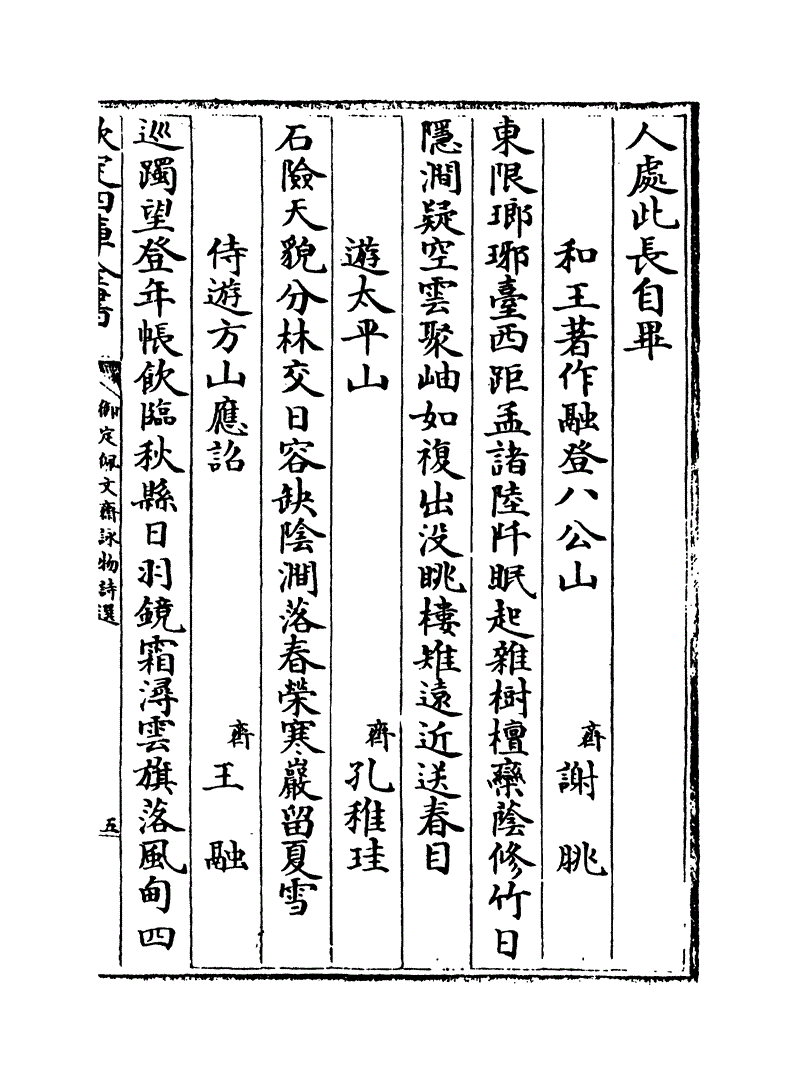 人處此長自畢
和王著作融登八公山
齊謝朓
東限瑯琊臺西距孟諸陸阡眠起雜樹檀欒蔭修竹日
隱澗疑空雲聚岫如複出没眺樓雉遠近送春目
遊太平山
齊孔稚珪
石險天貌分林交日容缺陰澗落春榮寒巖留夏雪
侍遊方山應詔
齊王融
巡躅望登年帳飲臨秋縣日羽鏡霜潯雲旗落風甸四
欽定四庫全書
御定佩文齋詠物詩選
五